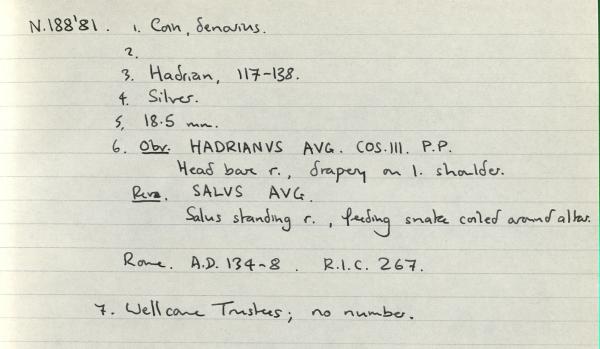 N.188'81. 1. Coin, denarius.
2.
3. Hadrian, 117-138.
4. Silver.
5, 18.5 mm.
6. Obv. HADRIANVS AVG. COS.III. P.P.
Head bare r., drapery on l. shoulder.
Rev. SALVS AVG.
Salus standing r., feeding snake coiled around altar.
Rome. A.D. 134-8. R.I.C. 267.
7. Wellcome Trustees; no number.